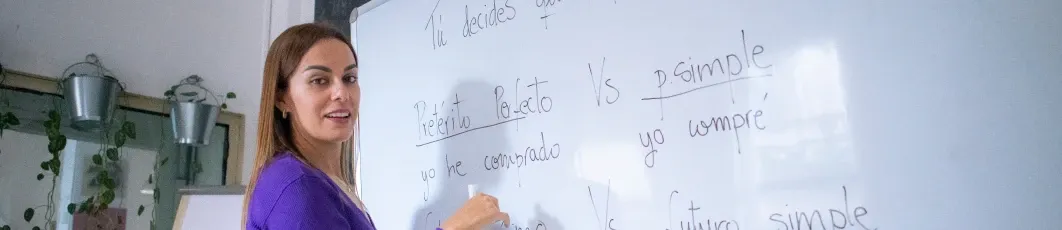 Tú decides
Pretérito Perfecto Vs p.simple
yo he comprado yo compré
Vs futuro simple